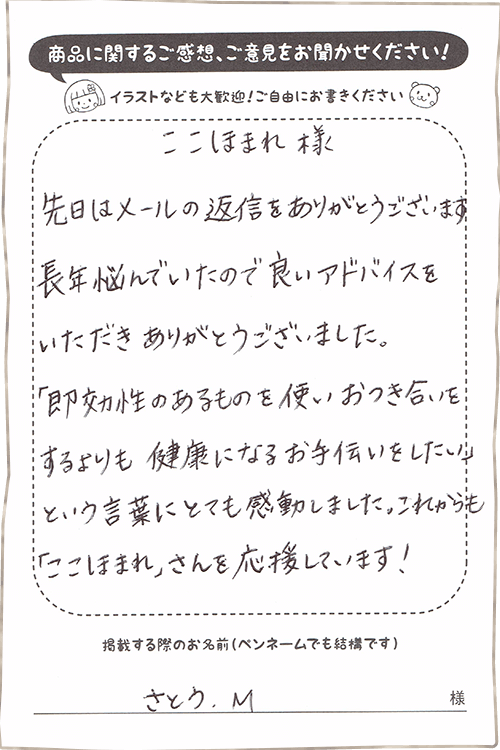 商品に関するご感想、ご意見をお聞かせください!
イラストなども大歓迎!ご自由にお書きください
ここほまれ 様
先日はメールの返信をありがとうございます
長年悩んでいたので良いアドバイスを
いただきありがとうございました。
「即効性のあるものを使いおつき合いを
するよりも 健康になるお手伝いをしたい」
という言葉にとても感動しました。これからも
「ここほまれ」さんを応援しています!
掲載する際のお名前(ペンネームでも結構です)
さとう.M 様